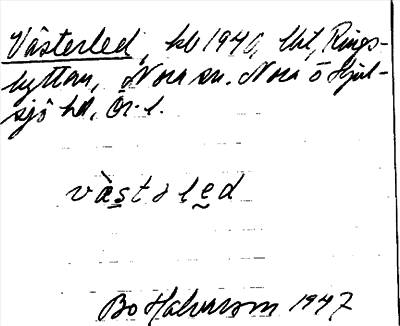 Västerled, kb 1940, lht, Rings-
hyttan, Nora sn. Nora o Hjul-
sjö hd, Ör. l.
vä̀stəled
Bo Halvarson 1947